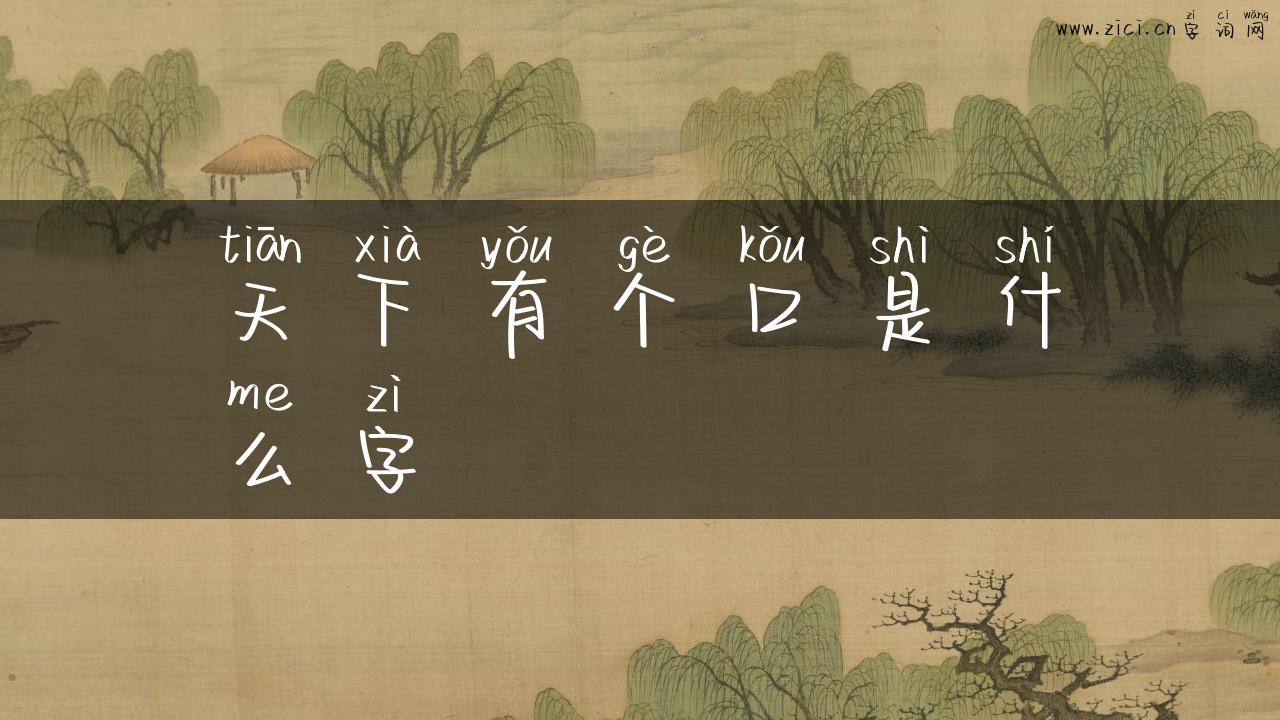 zì cí wǎng
www.zici.cn 字 词 网
tiān xià yǒu gè kǒu shì shí
天 下 有 个 口 是 什
me zì
么 字